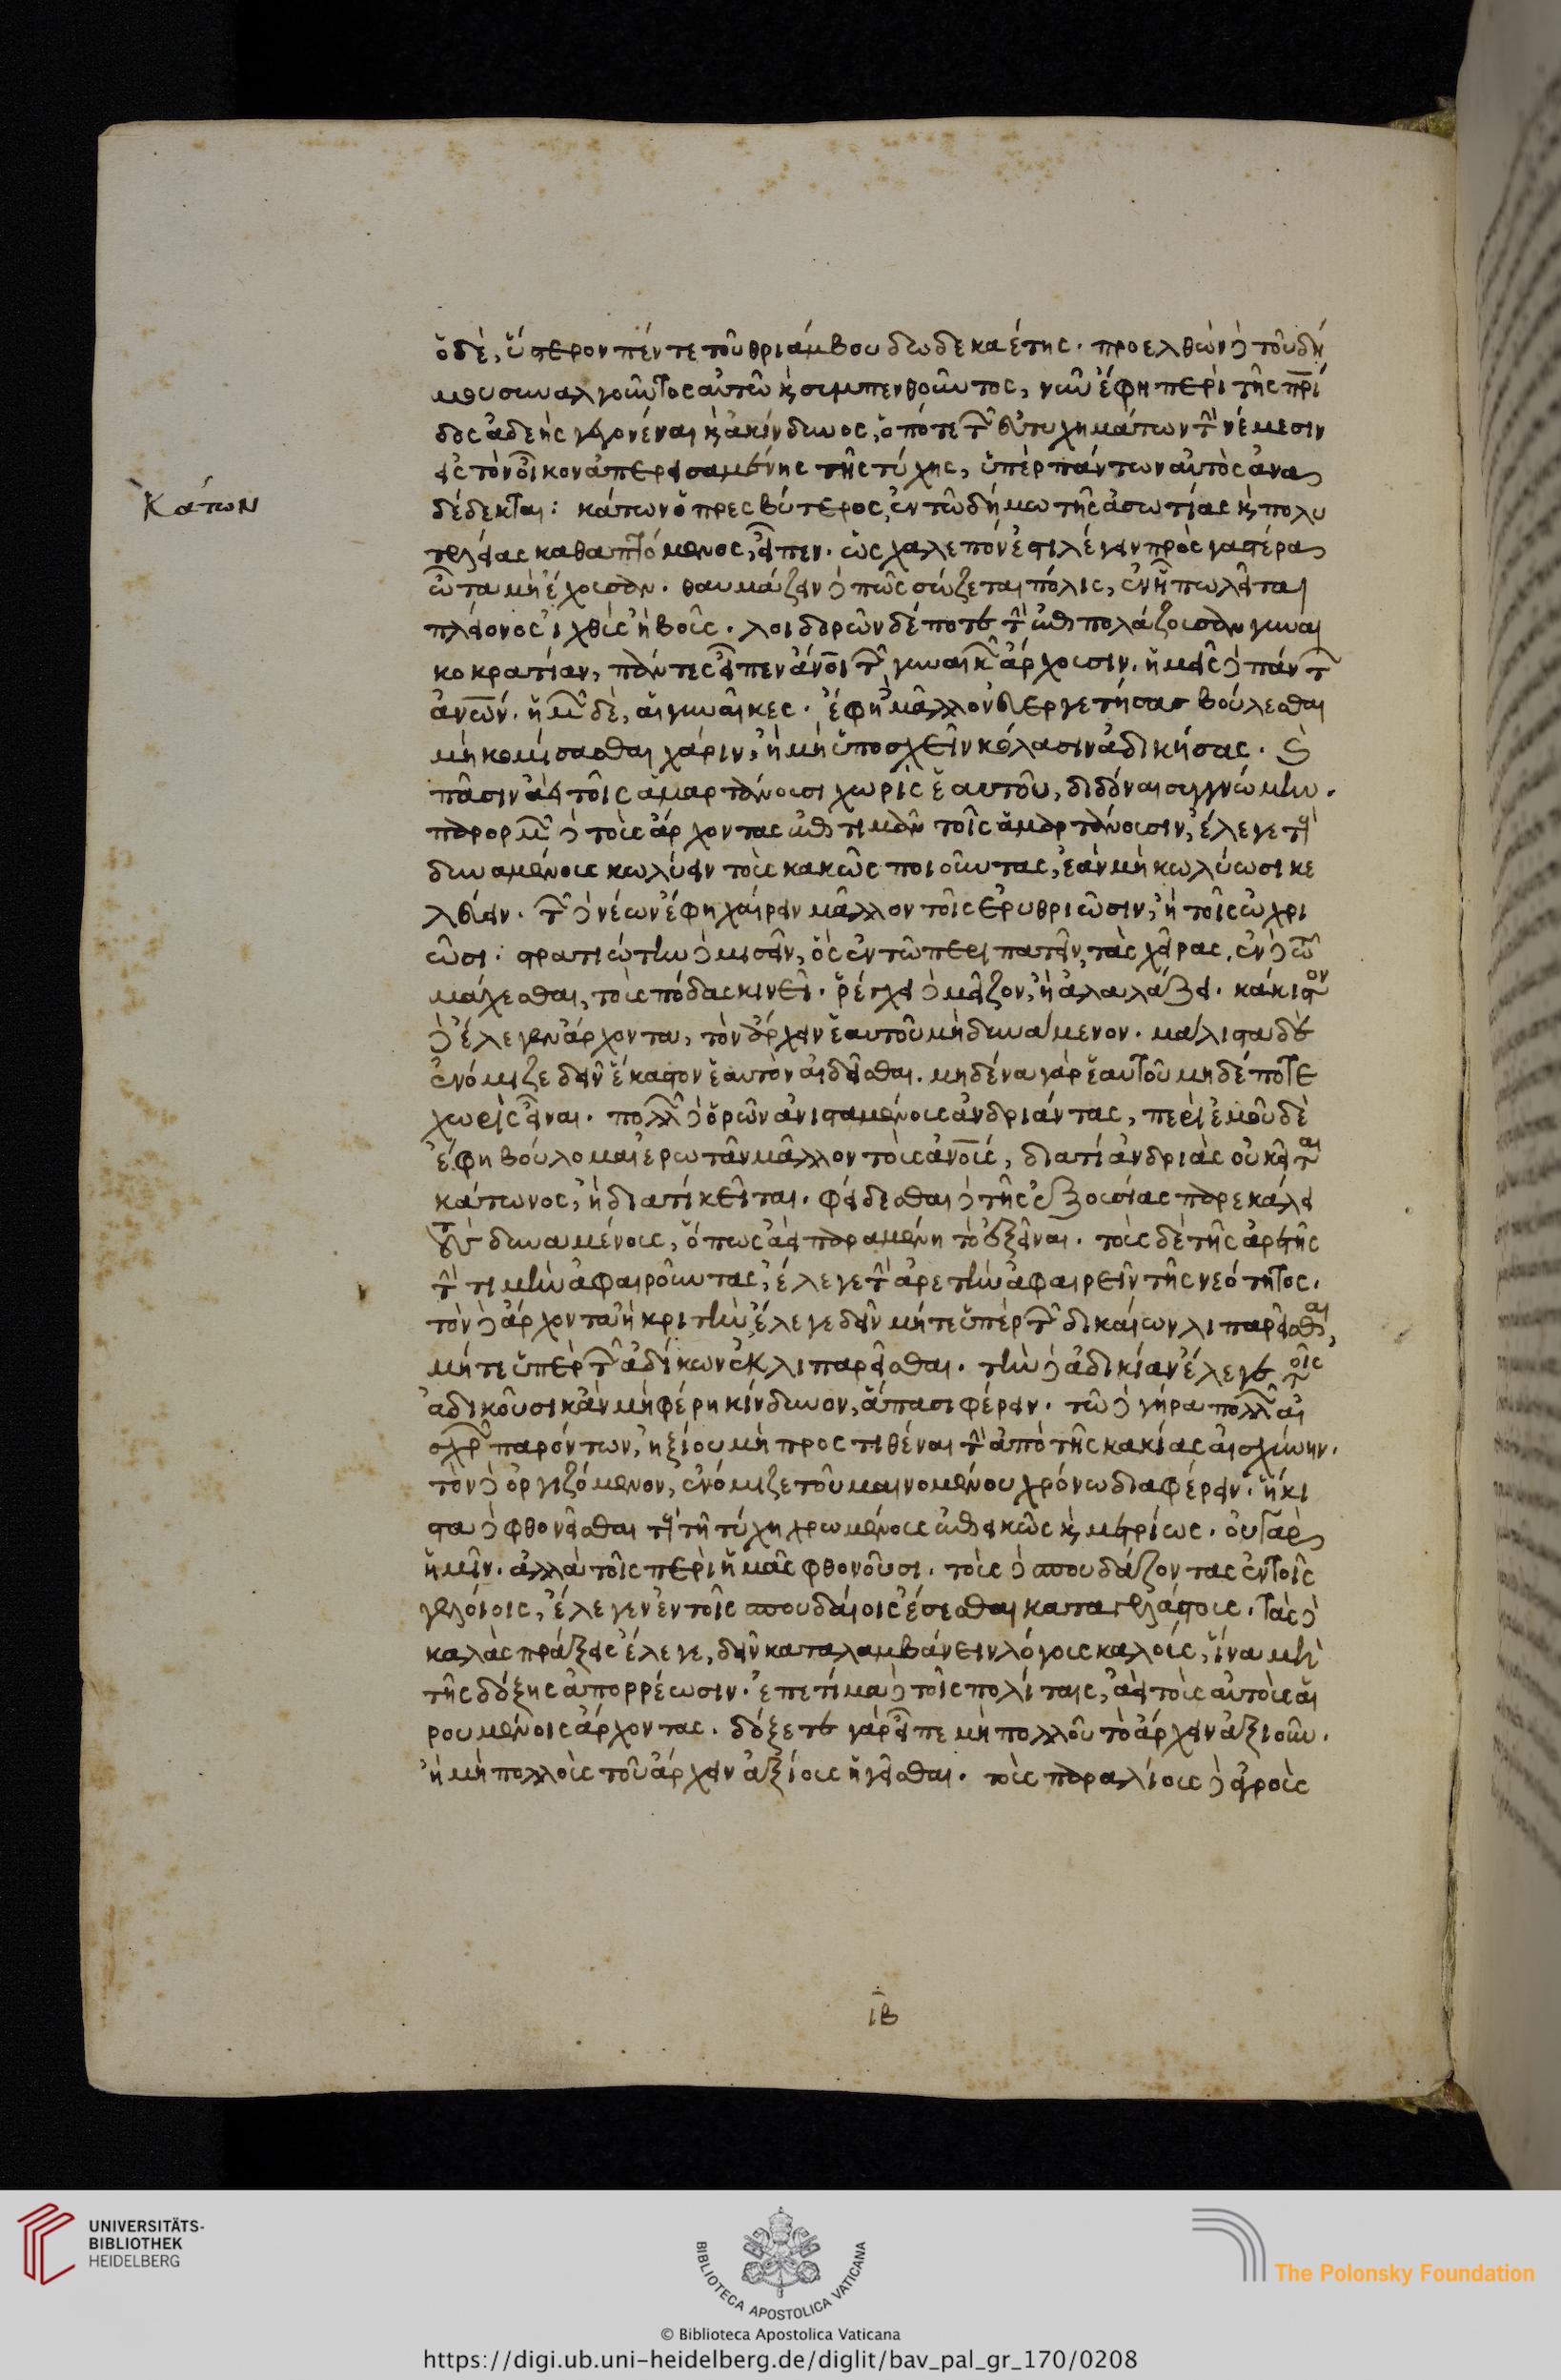 ὁ δὲ, ὕστερον πέντε τοῦ θριάμβου δωδεκαέτης. προελθὼν δὲ τοῦ δή
μου συναλγοῦντος αὐτῶ καὶ συμπενθοῦντος, νῦν ἔφη περὶ τῆς πρί
δος ἀδεὴς γεγονέναι καὶ ἀκίνδυνος, ὁπότε τῶν εὐτυχημάτων τὴν νέμεσιν
εἰς τὸν οἶκον ἀπερεισαμένης τῆς τύχης, ὑπὲρ πάντων αὐτὸς ἀνα
δέδεκται: κάτων ὁ πρεσβύτερος, ἐν τῶ δήμω τῆς ἀσωτίας καὶ πολυ
Κάτων
τελείας καθαπτόμενος, εἶπεν. ὡς χαλεπόν ἐστι λέγειν πρὸς γαστέρα
ὦτα μὴ ἔχουσαν. θαυμάζειν δὲ πῶς σώζεται πόλις, ἐν ἧ πωλεῖται
πλείονος ἰχθὺς ἢ βοῦς. λοιδορῶν δέ ποτε τὴν ἐπιπολάζουσαν γυναι
κοκρατίαν, πάντες εἶπεν ἄνοι τῶν γυναικῶν ἄρχουσιν. ἡμεῖς δὲ πάντων
ἀνων. ἡμῶν δὲ, αἱ γυναῖκες. ἔφη μᾶλλον εὐεργετήσας βούλεσθαι
μὴ κομίσασθαι χάριν, ἢ μὴ ὑποσχεῖν κόλασιν ἀδικήσας. καὶ
πᾶσιν ἀεὶ τοῖς ἁμαρτάνουσι χωρὶς ἑαυτοῦ, διδόναι συγγνώμην.
παρορμῶν δὲ τοὺς ἄρχοντας ἐπιτιμᾶν τοῖς ἁμαρτάνουσιν, ἔλεγε τοὺς
δυναμένους κωλύειν τοὺς κακῶς ποιοῦντας, ἐὰν μὴ κωλύωσι κε
λεύειν. τῶν δὲ νέων ἔφη χαίρειν μᾶλλον τοῖς ἐρυθριῶσιν, ἢ τοῖς ὠχρι
ῶσι. στρατιώτην δὲ μισεῖν, ὃς ἐν τῶ περιπατεῖν, τὰς χεῖρας, ἐν δὲ τῶ
μάχεσθαι, τοὺς πόδας κινεῖ. ῥέγχει δὲ μεῖζον, ἢ ἀλαλάζει. κάκιστον
δὲ ἔλεγεν ἄρχοντα, τὸν ἄρχειν ἑαυτοῦ μὴ δυνάμενον. μάλιστα δὲ
ἐνόμιζε δεῖν ἕκαστον ἑαυτὸν αἰδεῖσθαι. μηδένα γὰρ ἑαυτοῦ μηδέποτε
χωρὶς εἶναι. πολλῶν δὲ ὁρῶν ἀνισταμένους ἀνδριάντας, περὶ ἐμοῦ δὲ
ἔφη βούλομαι ἐρωτᾶν μᾶλλον τοὺς ἀνους, διατί ἀνδριὰς οὐ κεῖται
κάτωνος, ἢ διατί κεῖται. φείδεσθαι δὲ τῆς ἐξουσίας παρεκάλει
τοὺς δυναμένους, ὅπως ἀεὶ παραμένη τὸ ἐξεῖναι. τοὺς δὲ τῆς ἀρετῆς
τὴν τιμὴν ἀφαιροῦντας, ἔλεγε τὴν ἀρετὴν ἀφαιρεῖν τῆς νεότητος.
τὸν δὲ ἄρχοντα ἢ κριτὴν ἔλεγε δεῖν μήτε ὑπὲρ τῶν δικαίων λιπαρεῖσθαι,
μήτε ὑπὲρ τῶν ἀδίκων ἐκλιπαρεῖσθαι. τὴν δὲ ἀδικίαν ἔλεγε τοῖς
ἀδικοῦσι κἂν μὴ φέρη κίνδυνον, ἅπασι φέρειν. τῶ δὲ γήρα πολλῶν αἰ
σχρῶν παρόντων, ἠξίου μὴ προστιθέναι τὴν ἀπὸ τῆς κακίας αἰσχύνην.
τὸν δὲ ὀργιζόμενον, ἐνόμιζε τοῦ μαινομένου χρόνω διαφέρειν. ἥκι
στα δὲ φθονεῖσθαι τοὺς τῆ τύχη χρωμένους ἐπιεικῶς καὶ μετρίως. οὐ γὰρ
ἡμῖν. ἀλλὰ τοῖς περὶ ἡμᾶς φθονοῦσι. τοὺς δὲ σπουδάζοντας ἐν τοῖς
γελοίοις, ἔλεγεν ἐν τοῖς σπουδαίοις ἔσεσθαι καταγελάστους. τὰς δὲ
καλὰς πράξεις ἔλεγε, δεῖν καταλαμβάνειν λόγοις καλοῖς, ἵνα μὴ
τῆς δόξης ἀπορρέωσιν. ἐπετίμα δὲ τοῖς πολίταις, ἀεὶ τοὺς αὐτοὺς αἱ
ρουμένοις ἄρχοντας. δόξετε γὰρ εἶπε μὴ πολλοῦ τὸ ἄρχειν ἀξιοῦν.
ἢ μὴ πολλοὺς τοῦ ἄρχειν ἀξίους ἡγεῖσθαι. τοὺς παραλίους δὲ ἀγροὺς
ιβ
UNIVERSITÄTS-
BIBLIOTHEK
HEIDELBERG
BIBLIOTECA APOSTOLICA VATICANA
The Polonsky Foundation
© Biblioteca Apostolica Vaticana
https://digi.ub.uni-heidelberg.de/diglit/bav_pal_gr_170/0208